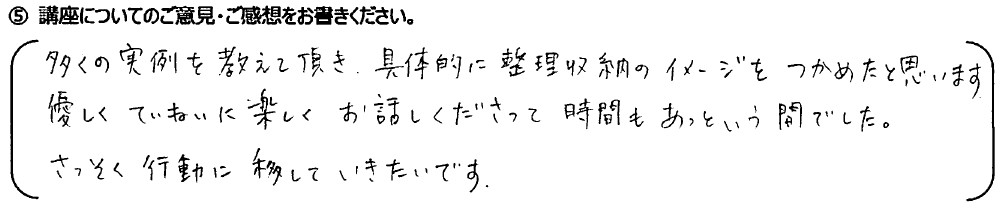 ⑤ 講座についてのご意見・ご感想をお書きください。
多くの実例を教えて頂き、具体的に整理収納のイメージをつかめたと思います
優しくていねいに楽しくお話しくださって時間もあっという間でした。
さっそく行動に移していきたいです。